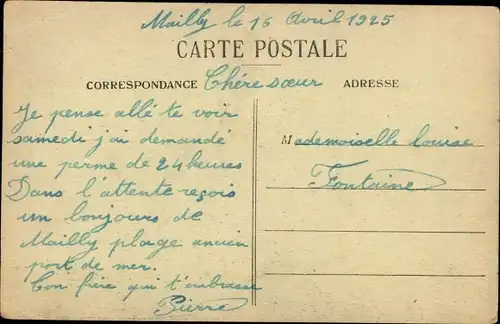 Mailly le 16 Avril 1925
CARTE POSTALE
CORRESPONDANCE Chère sœur
Je pense allé te voir
samedi j'ai demandé
une perme de 24 heures
Dans l'attente reçois
un bonjours de
Mailly plage ancien
port de mer.
Ton frère qui t'embrasse
Pierre
ADRESSE
Mademoiselle Louise
Fontaine